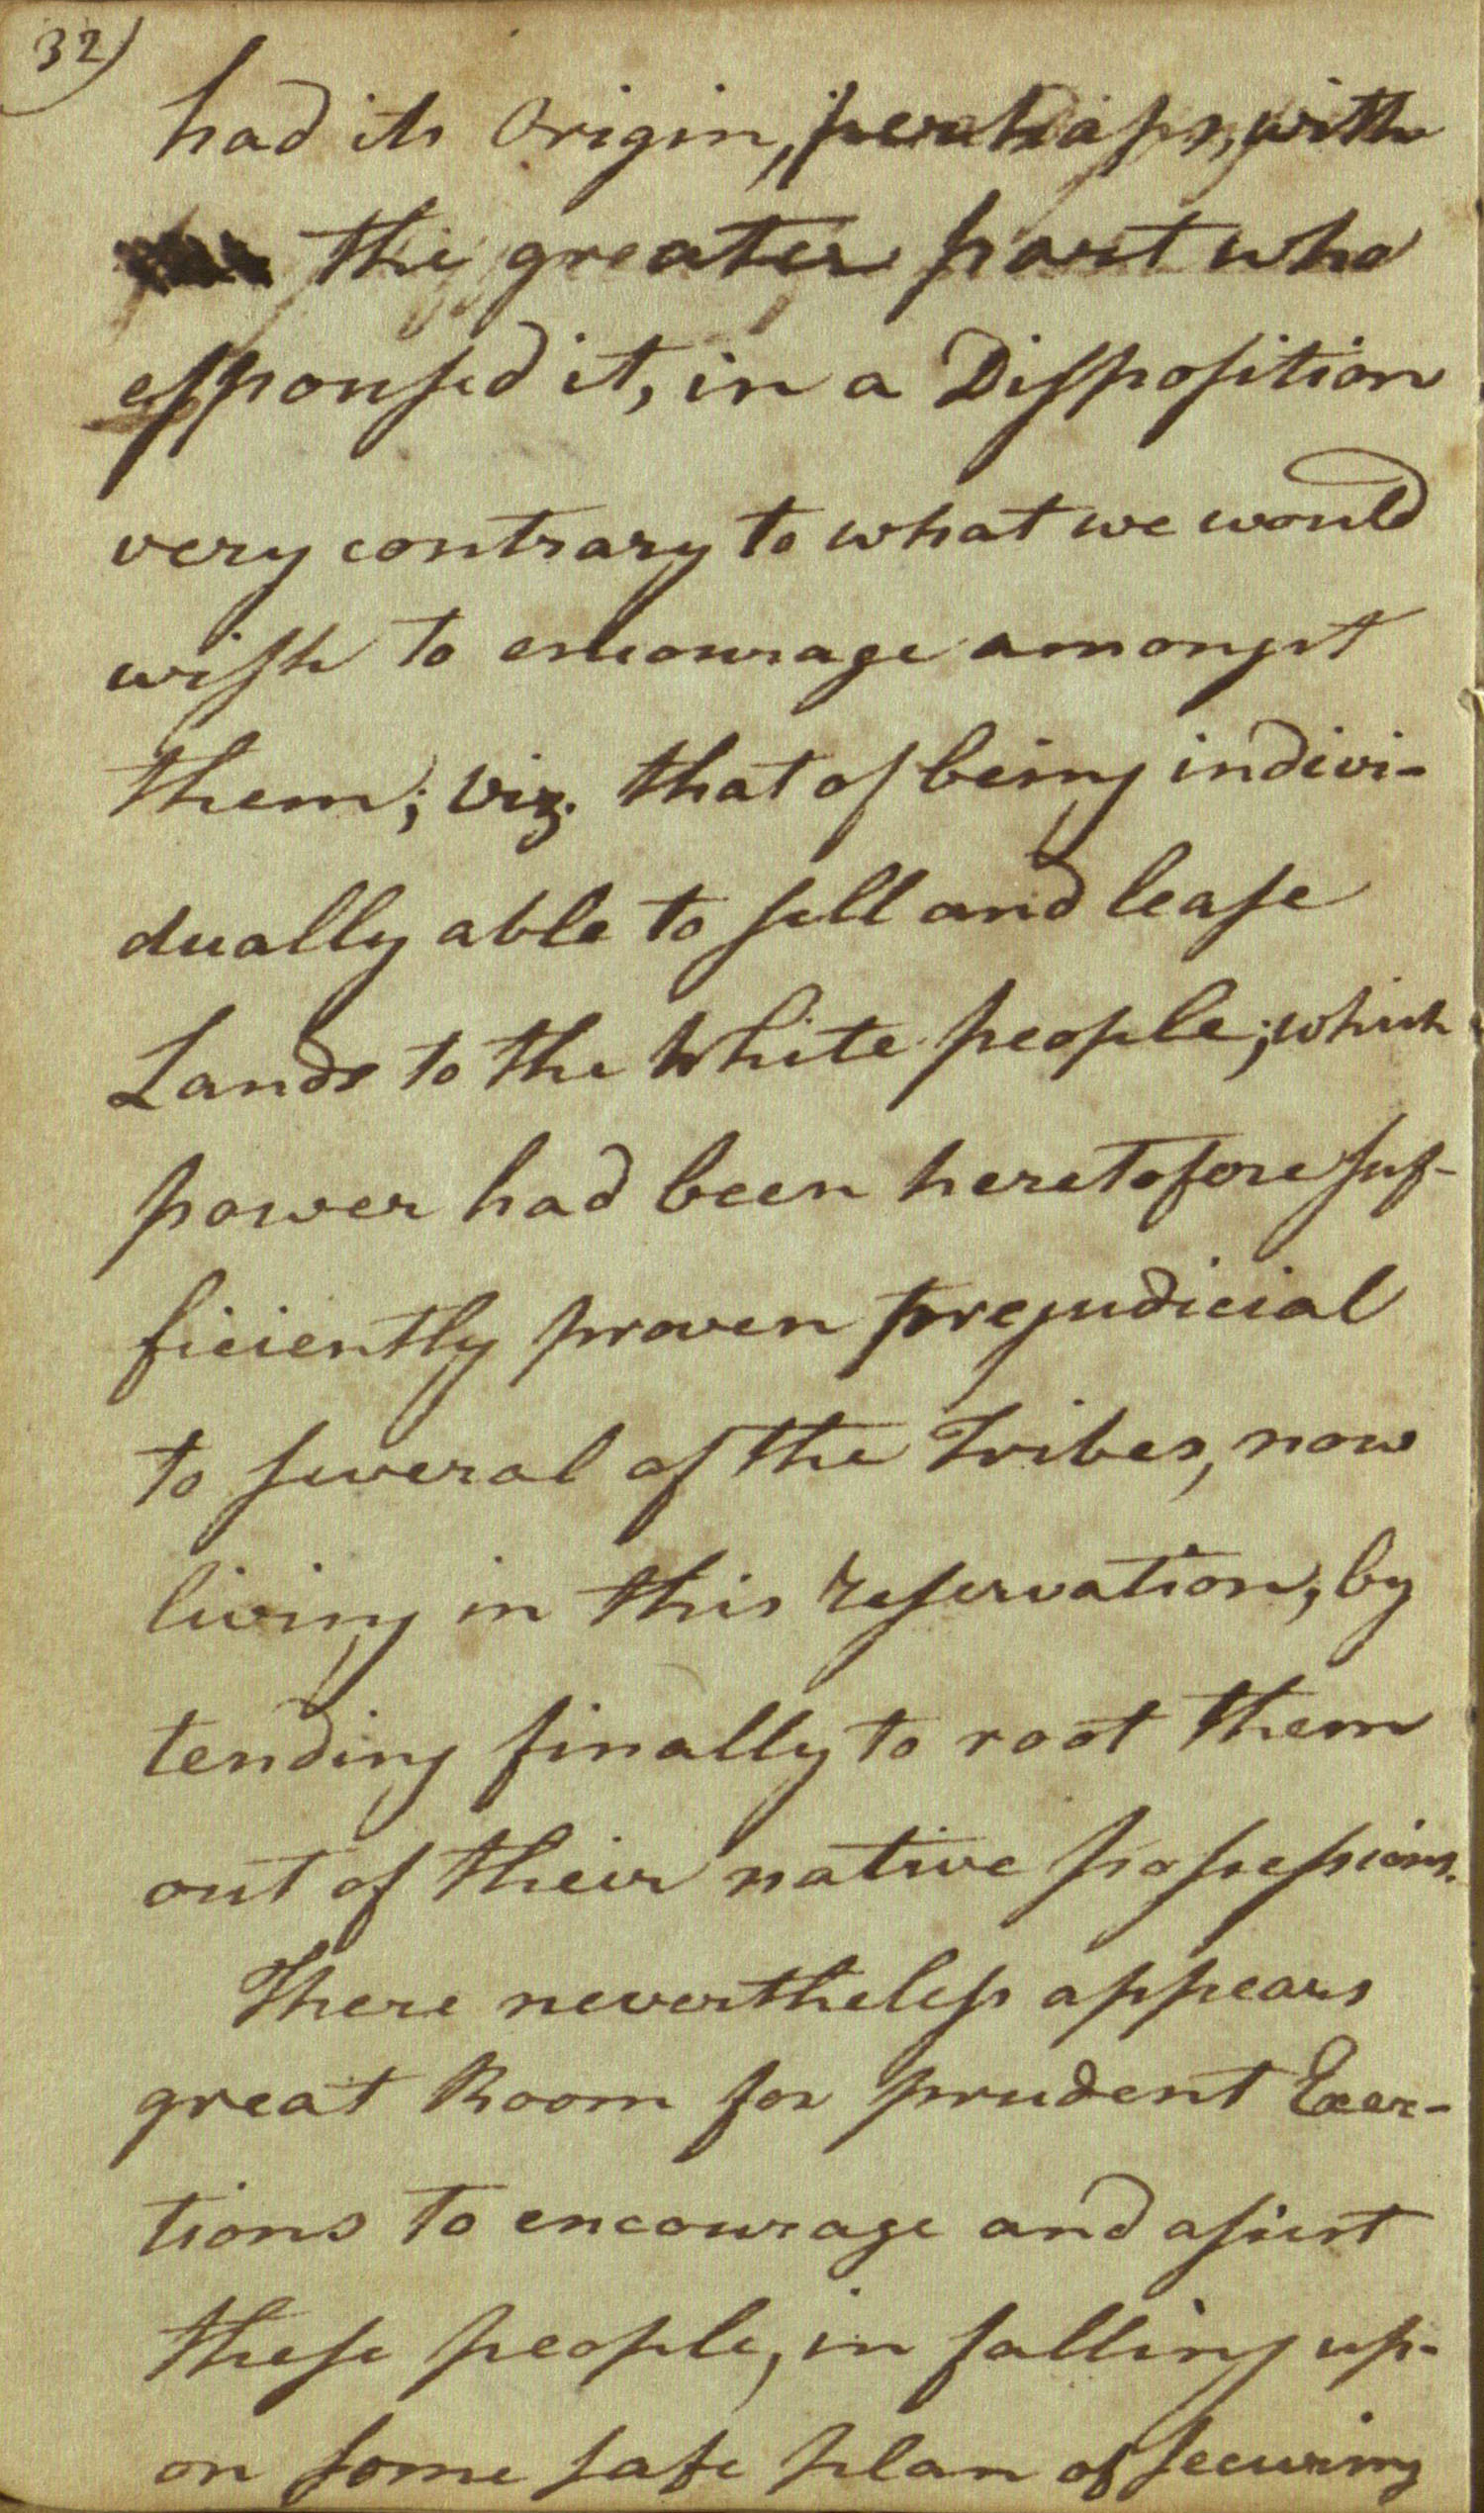 32)
had its Origin, perhaps, with
the greater part who
espoused it, in a Disposition
very contrary to what we would
wish to encourage amongst
them; viz. that of being indivi-
dually able to sell and lease
Lands to the White people; which
power had been heretofore suf-
ficiently proven prejudicial
to several of the Tribes, now
living in this reservation, by
tending finally to root them
out of their native possessions.
There nevertheless appears
great Room for prudent Exer-
tions to encourage and assist
these people, in falling up-
on some safe plan of securing